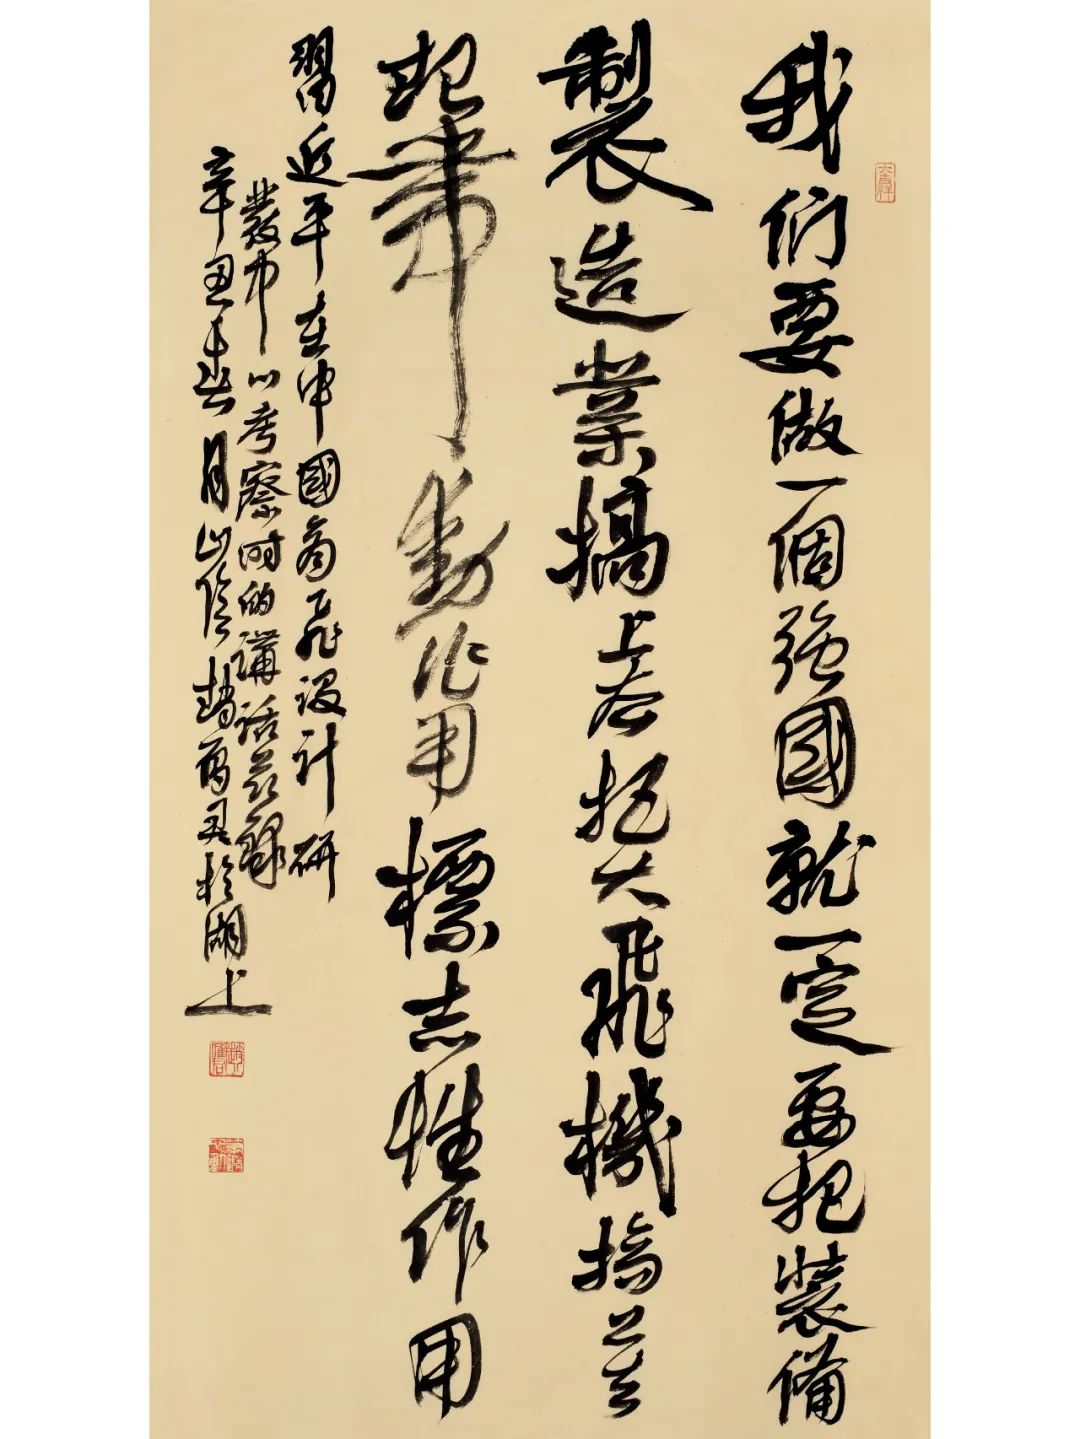 大吉祥
我們要做一個强國就一定要把裝備
製造業搞上去把大飛機搞上去
起帶動作用標志性作用
習近平在中國商飛設計研
發中心考察時的講話茲錄
辛丑春月山陰趙雁君於湖上